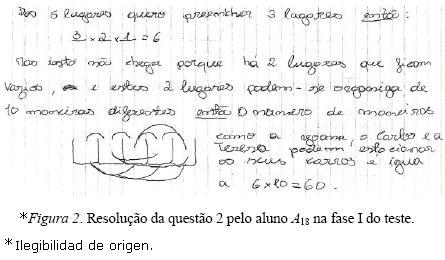 Dos 5 lugares quero preencher 3 lugares então:
3 × 2 × 1 = 6
Mas isto não chega porque há 2 lugares que ficam
vazios, e estes 2 lugares podem-se organiza de
10 maneiras diferentes então O número de maneiras
como a Joana, o Carlos e a
Teresa podem estacionar
os seus carros é igua
a 6×10=60.
*Figura 2. Resolução da questão 2 pelo aluno A18 na fase I do teste.
* Ilegibilidad de origen.